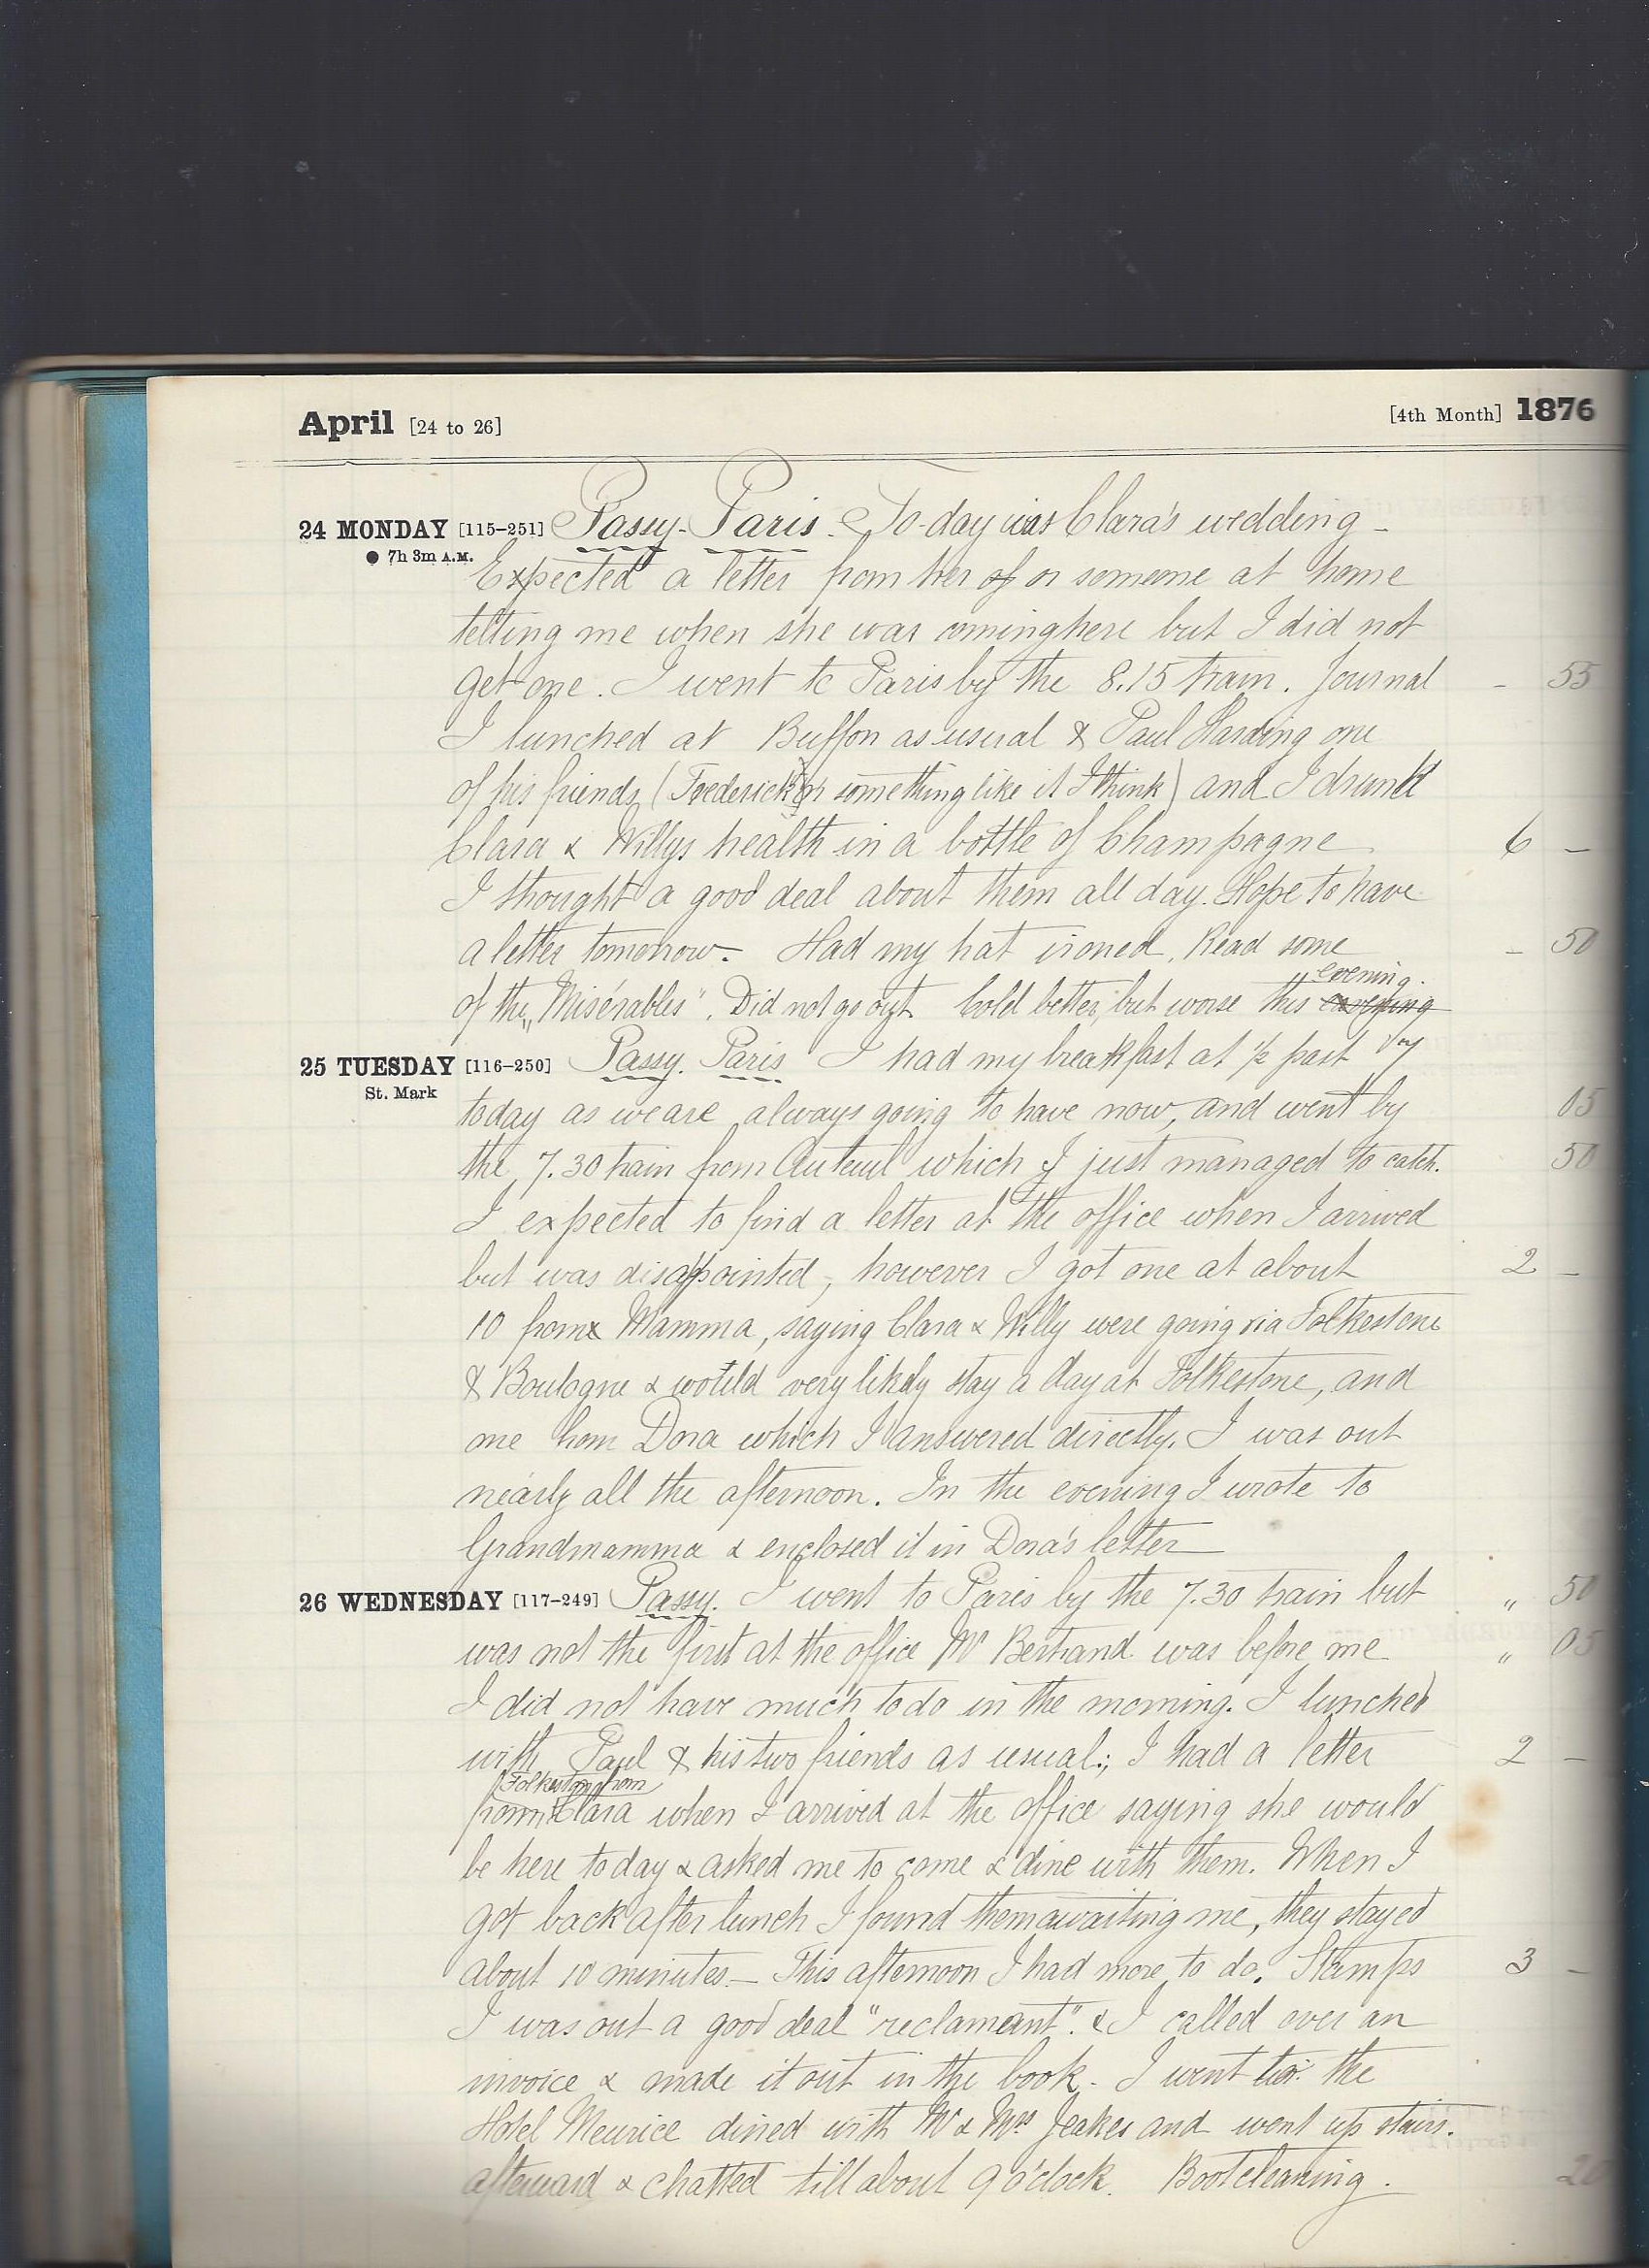 April [24 to 26] [4th Month] 1876
24 MONDAY [115-251] Passy-Paris. To-day was Clara's wedding -
● 7h 3m A.M.
Expected a letter from her or someone at home
telling me when she was coming here but I did not
get one. I went to Paris by the 8.15 train. Journal - 55
I lunched at Buffon as usual & Paul Harding one
of his friends (Frederick or something like it I think) and I drunk
Clara & Willys health in a bottle of Champagne 6 -
I thought a good deal about them all day. Hope to have
a letter tomorrow - Had my hat ironed. Read some - 50
evening.
of the „Misérables". Did not go out. Cold better, but worse this evening
25 TUESDAY [116-250] Passy. Paris I had my breakfast at ½ past
St. Mark
today as we are always going to have now, and went by 05
the 7.30 train from Auteuil which I just managed to catch. 50
I expected to find a letter at the office when I arrived
but was disappointed, however I got one at about 2 -
10 from Mamma, saying Clara & Willy were going via Folkestone
& Boulogne & would very likely stay a day at Folkestone, and
one from Dora which I answered directly. I was out
nearly all the afternoon. In the evening I wrote to
Grandmamma & enclosed it in Dora's letter
26 WEDNESDAY [117-249] Passy. I went to Paris by the 7.30 train but „ 50
was not the first at the office Mr Bertrand was before me „ 05
I did not have much to do in the morning. I lunched
with Paul & his two friends as usual; I had a letter 2 -
Folkestone from
from Clara when I arrived at the office saying she would
be here today & asked me to come & dine with them. When I
got back after lunch I found them awaiting me, they stayed
about 10 minutes - This afternoon I had more to do. Stamps 3 -
I was out a good deal "reclamant". & I called over an
invoice & made it out in the book - I went to the
Hotel Meurice dined with Mr & Mrs Jeakes and went up stairs.
afterward & chatted till about 9 o'clock. Bootcleaning. 20